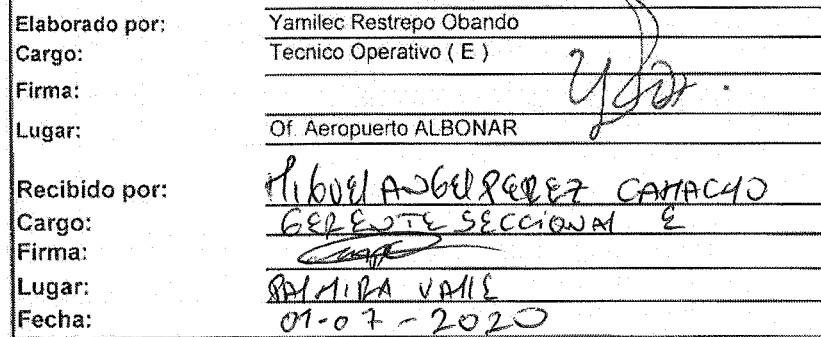 Elaborado por: Yamilec Restrepo Obando
Cargo: Tecnico Operativo ( E )
Firma:
Lugar: Of. Aeropuerto ALBONAR
Recibido por: MIGUEL ANGEL PEREZ CAMACHO
Cargo: GERENTE SECCIONAL E
Firma:
Lugar: PALMIRA VALLE
Fecha: 01-07-2020